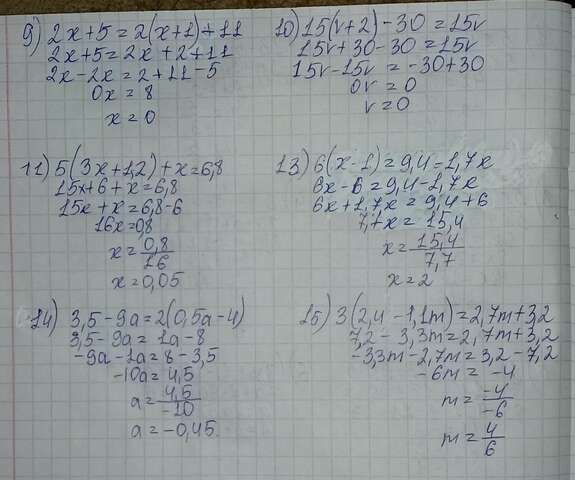 9) 2x+5=2(x+1)+11
2x+5=2x+2+11
2x-2x=2+11-5
0x=8
x=0
10) 15(v+2)-30=15v
15v+30-30=15v
15v-15v=-30+30
0v=0
v=0
11) 5(3x+1,2)+x=6,8
15x+6+x=6,8
15x+x=6,8-6
16x=0,8
x=0,8/16
x=0,05
13) 6(x-1)=9,4-1,7x
6x-6=9,4-1,7x
6x+1,7x=9,4+6
7,7x=15,4
x=15,4/7,7
x=2
14) 3,5-9a=2(0,5a-4)
3,5-9a=1a-8
-9a-1a=8-3,5
-10a=4,5
a=4,5/-10
a=-0,45
15) 3(2,4-1,1m)=2,7m+3,2
7,2-3,3m=2,7m+3,2
-3,3m-2,7m=3,2-7,2
-6m=-4
m=-4/-6
m=4/6